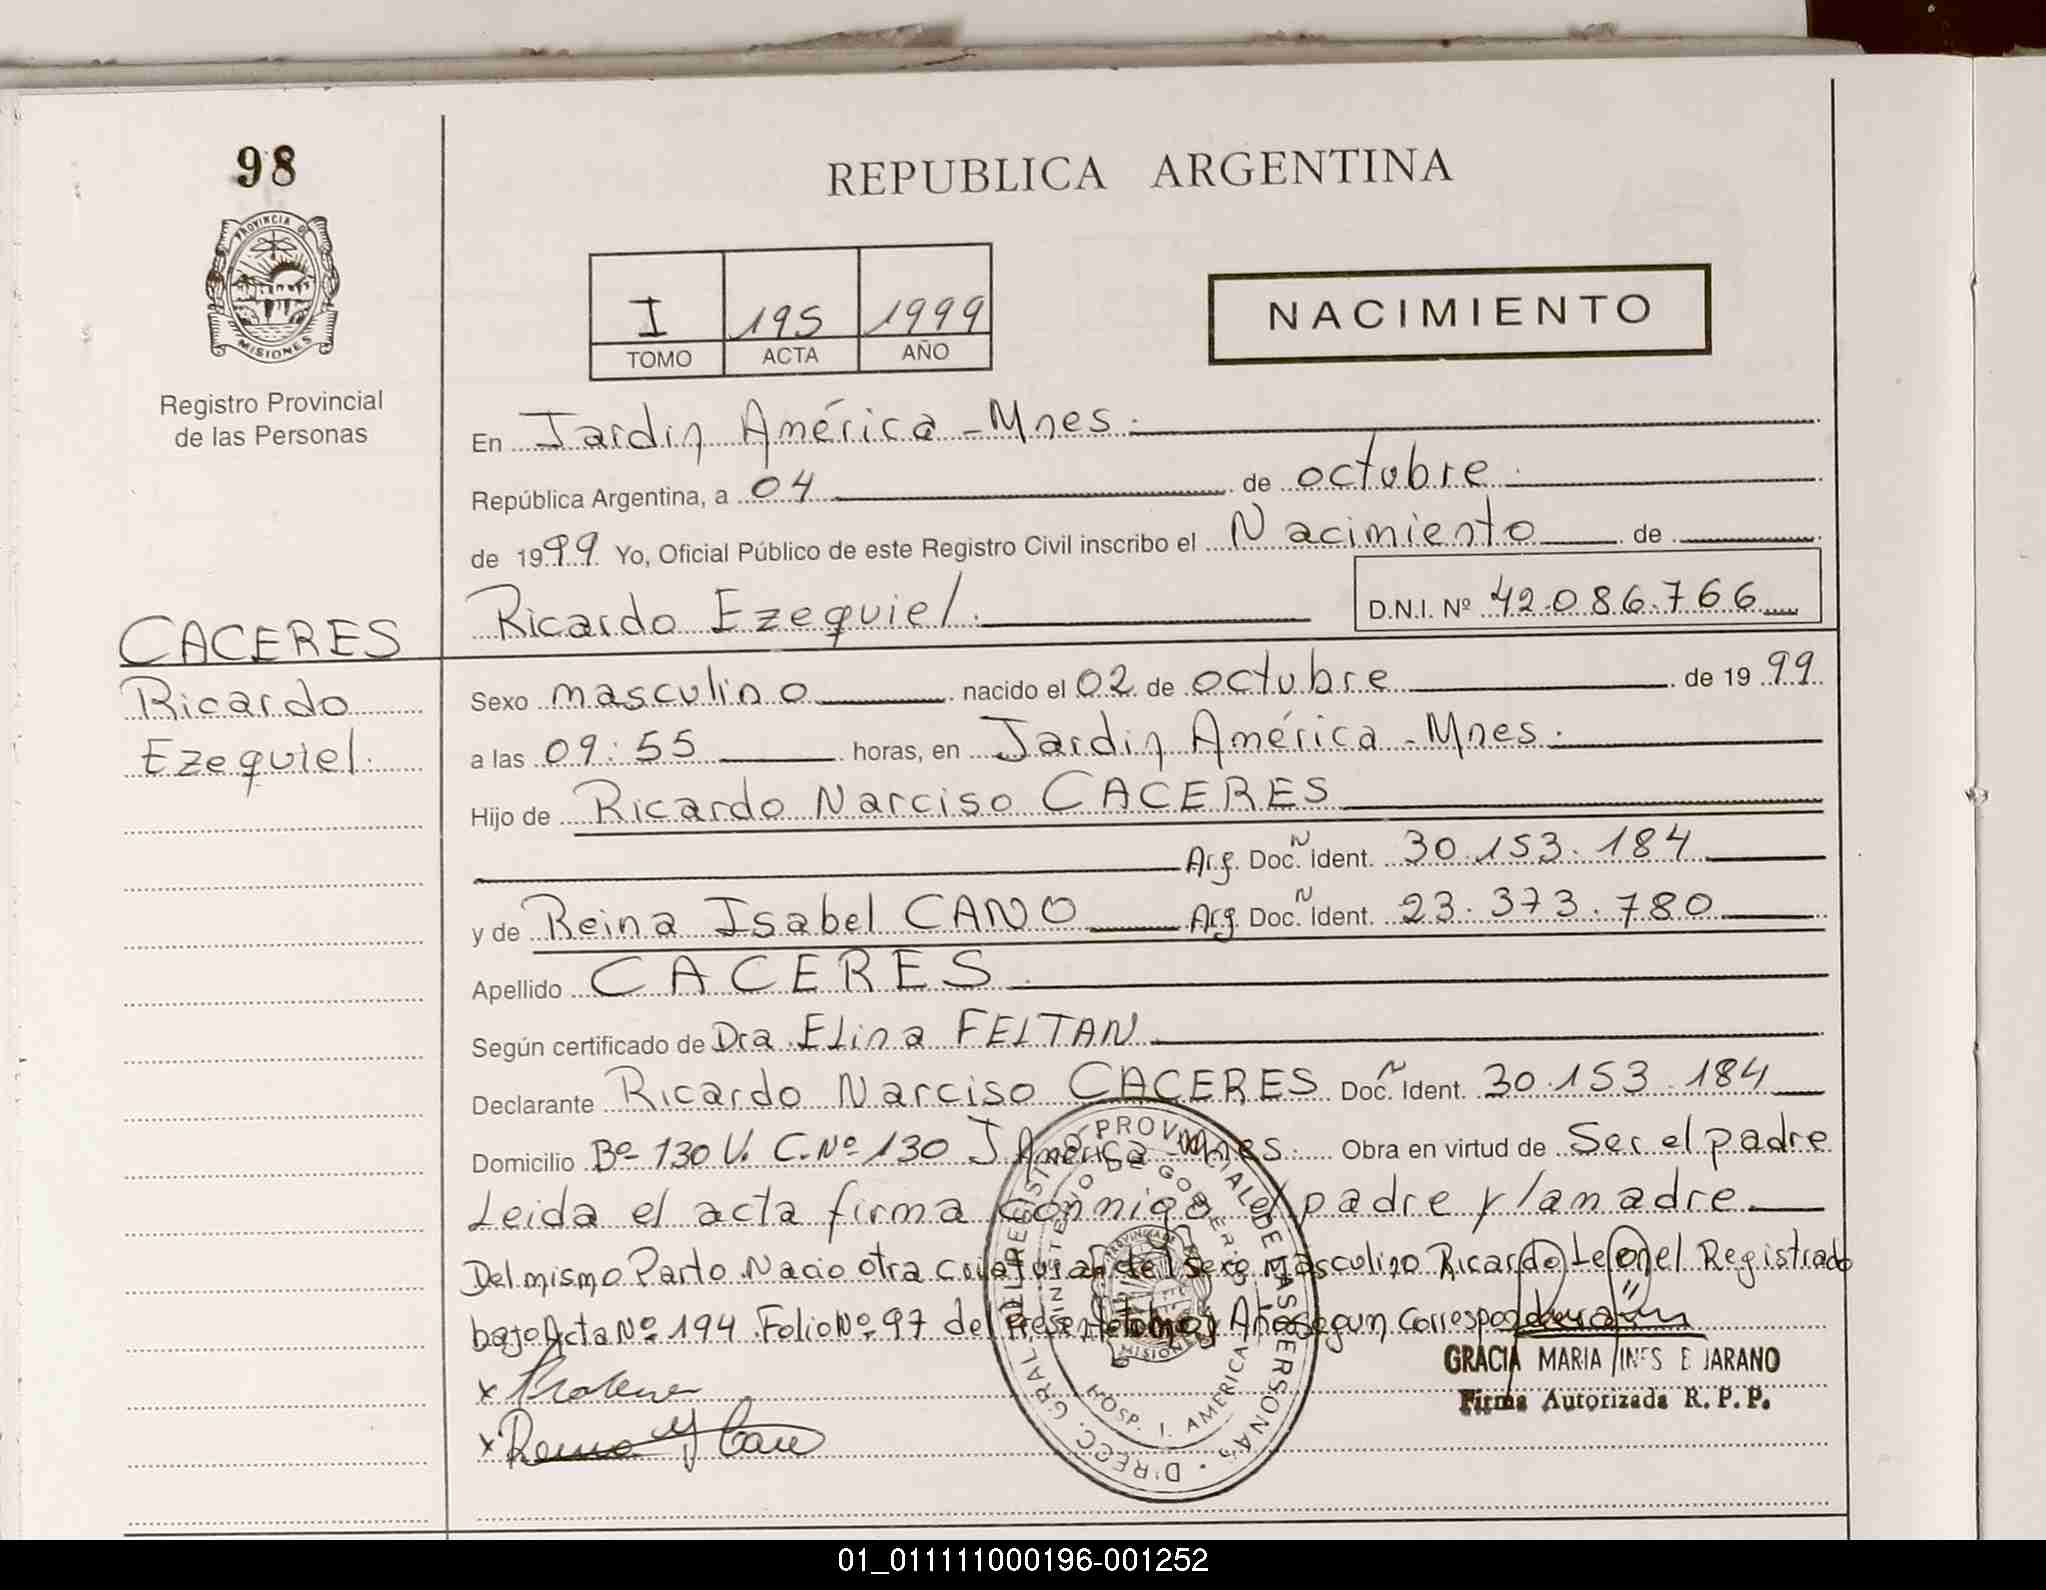 98
PROVINCIA DE
MISIONES
Registro Provincial
de las Personas
CACERES
Ricardo
Ezequiel.
REPUBLICA ARGENTINA
I 195 1999
TOMO ACTA AÑO
NACIMIENTO
En Jardin América - Mnes.
República Argentina, a 04 de octubre.
de 1999 Yo, Oficial Público de este Registro Civil inscribo el Nacimiento de
Ricardo Ezequiel. D.N.I. Nº 42.086.766
Sexo masculino nacido el 02 de octubre de 1999
a las 09:55 horas, en Jardin América - Mnes.
Hijo de Ricardo Narciso CACERES
Arg. Doc. Ident. 30.153.184
y de Reina Isabel CANO Arg. Doc. Ident. 23.373.780
Apellido CACERES.
Según certificado de Dra. Elina FELTAN
Declarante Ricardo Narciso CACERES Doc. Ident. 30.153.184
Domicilio Bº 130 V. C. Nº 130 J. América - Mnes. Obra en virtud de Ser el padre
Leida el acta firma conmigo el padre y la madre
Del mismo Parto Nacio otra criatura del Sexo masculino Ricardo Leonel Registrado
bajo Acta Nº 194 Folio Nº 97 del Presente tomo y Año segun Corresponda
DIRECC. GRAL. DEL REGISTRO PROVINCIAL DE LAS PERSONAS
MINISTERIO DE GOBIERNO
PROVINCIA DE
MISIONES
HOSP. J. AMERICA
GRACIA MARIA INES BEJARANO
Firma Autorizada R. P. P.
x
x
01_011111000196-001252